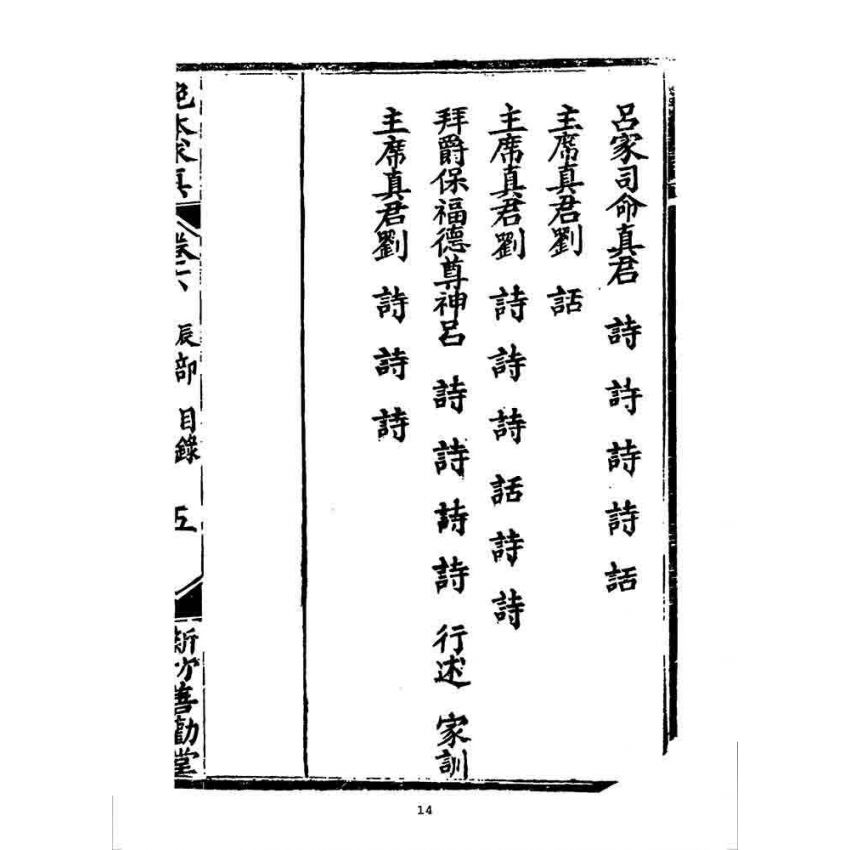 呂家司命真君 詩 詩 詩 詩 話
主席真君劉 話
主席真君劉 詩 詩 詩 話 詩 詩
拜爵保福德尊神呂 詩 詩 詩 詩 行述 家訓
主席真君劉 詩 詩 詩
卷六 辰部 目錄 五 新竹善勸堂
14